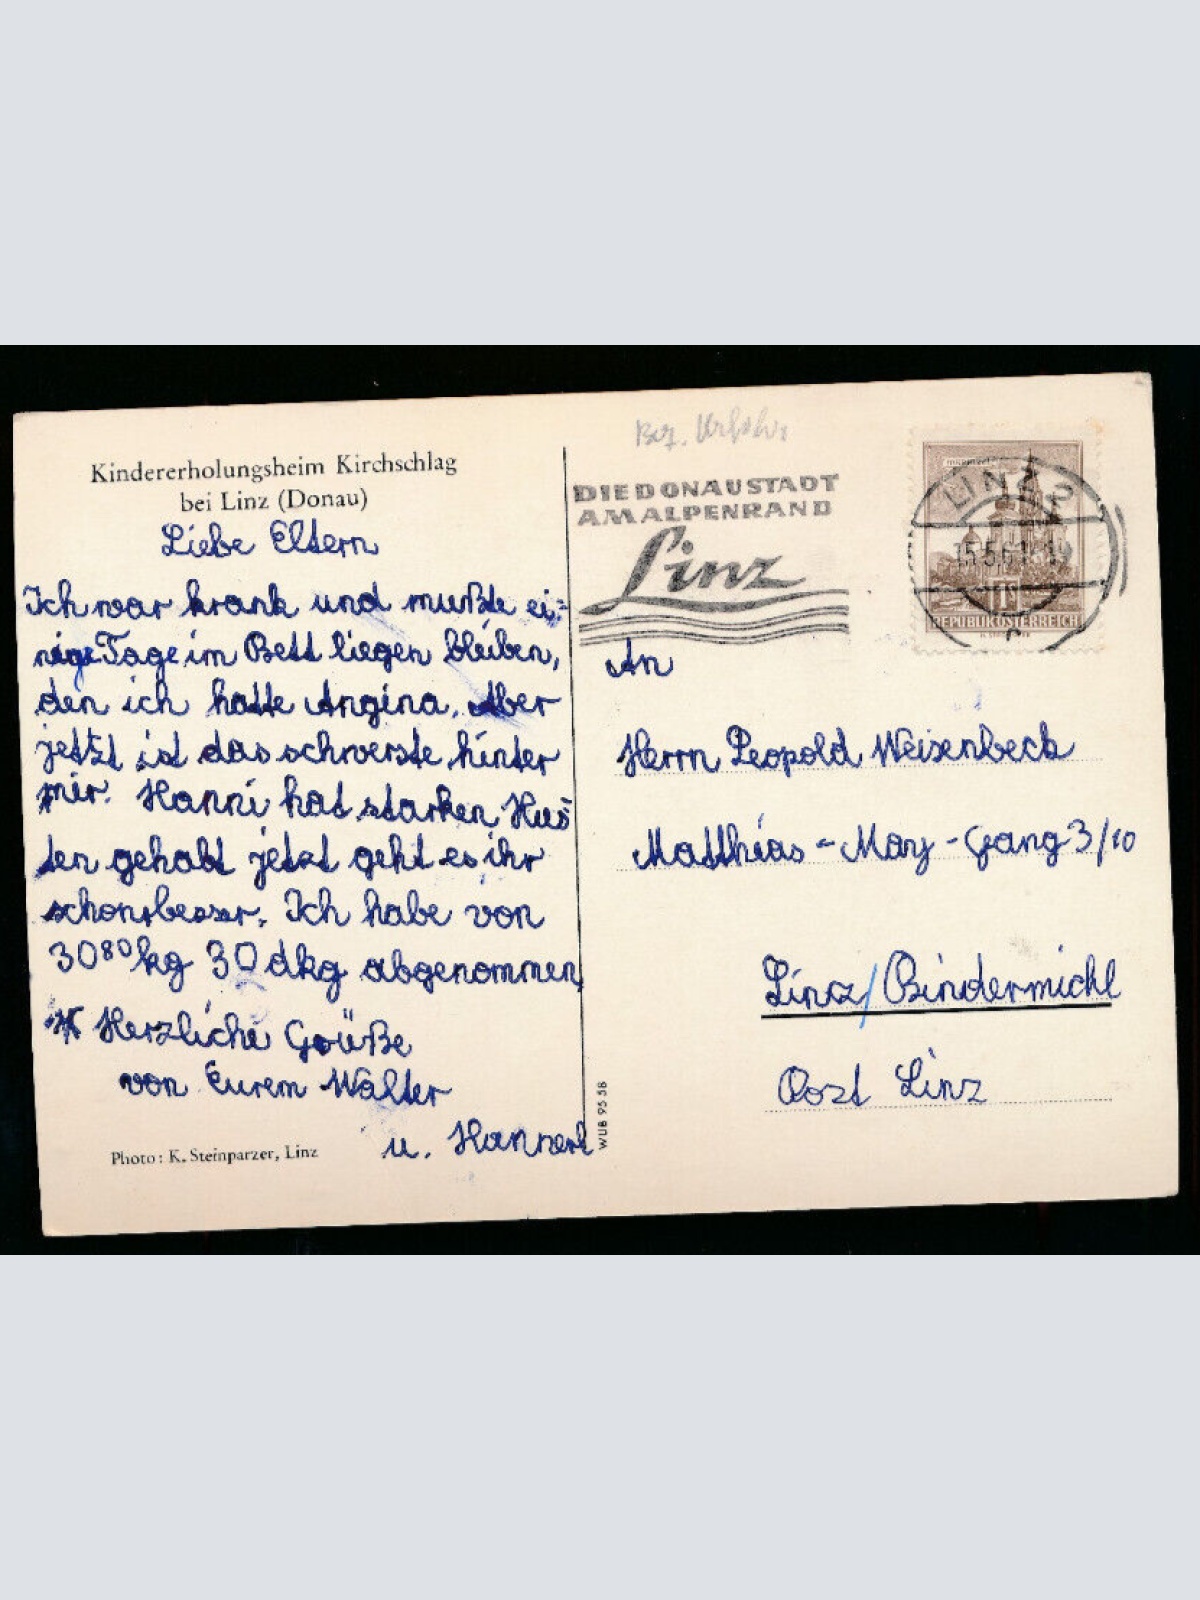 Kindererholungsheim Kirchschlag
bei Linz (Donau)
Liebe Eltern
Ich war krank und mußte ei=
nige Tage im Bett liegen bleiben,
den ich hatte Angina. Aber
jetzt ist das schwerste hinter
mir. Hanni hat starken Hus=
ten gehabt jetzt geht es ihr
schon besser. Ich habe von
30⁸⁰ kg 30 dkg abgenommen
Herzliche Grüße
von Eurem Walter
u. Hannerl
Photo: K. Steinparzer, Linz
WUB 95 58
Bez. Urfahr
DIE DONAUSTADT
AM ALPENRAND
Linz
LINZ 2
15.5.61
1S
REPUBLIK ÖSTERREICH
An
Herrn Leopold Weisenbeck
Matthias-May-Gang 3/10
Linz/Bindermichl
Post Linz